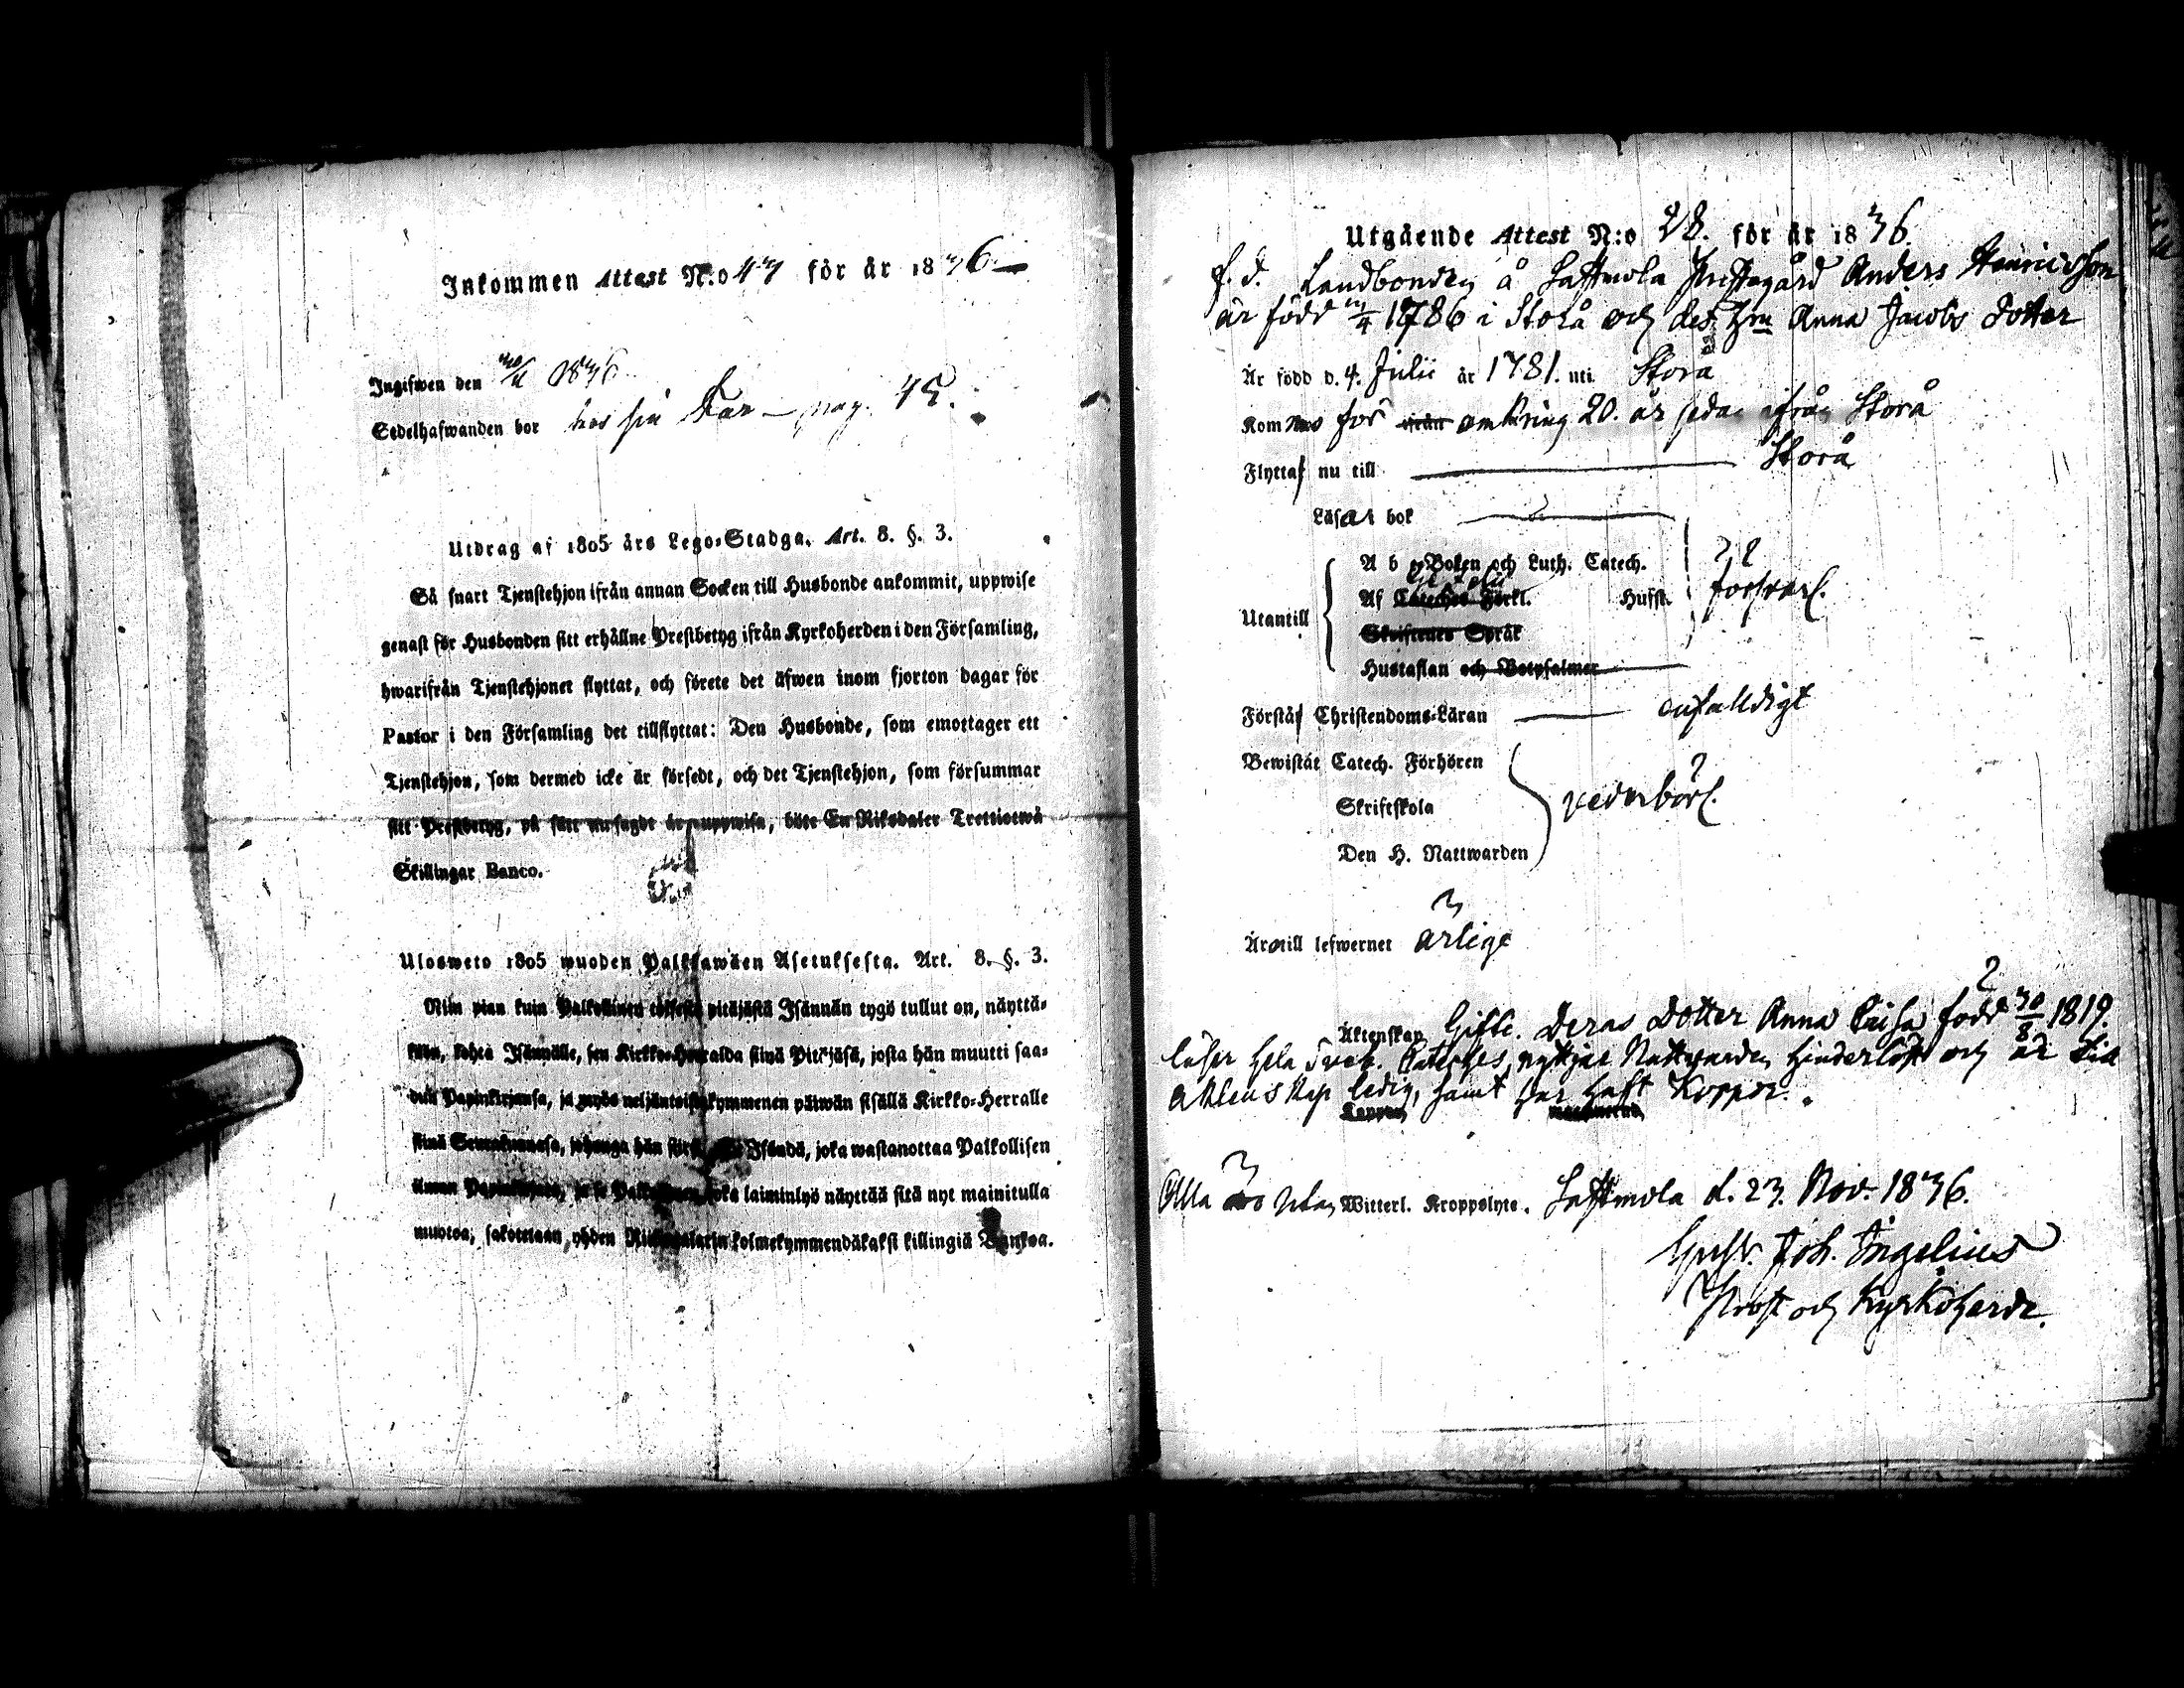 Inkommen Attest N:o 47 för år 1836
Ingifwen den 30/11 1836
Sedelhafwanden bor hos sin Far - pag. 45.
Utdrag af 1805 års Lego-Stadga. Art. 8. §. 3.
Så snart Tjenstehjon ifrån annan Socken till Husbonde ankommit, uppwise
genast för Husbonden sitt erhållne Prestbetyg ifrån Kyrkoherden i den Församling,
hwarifrån Tjenstehjonet flyttat, och förete det äfwen inom fjorton dagar för
Pastor i den Församling det tillflyttat: Den Husbonde, som emottager ett
Tjenstehjon, som dermed icke är försedt, och det Tjenstehjon, som försummar
sitt Prestbetyg, på sätt nu sagdt är, uppwisa, böte En Riksdaler Trettiotwå
Skillingar Banco.
Ulosweto 1805 wuoden Palkkawäen Asetuksesta. Art. 8. §. 3.
Niin pian kuin Palkollinen toisesta pitäjästä Isännän tygö tullut on, näyttä-
kön, kohta Isännälle, sen Kirkko-Herralda siinä Pitäjäsä, josta hän muutti saa-
dun Papinkirjansa, ja myös neljäntoistakymmenen päiwän sisällä Kirkko-Herralle
siinä Seurakunnasa, johonga hän siirsi Isändä, joka wastanottaa Palkollisen
ilman Papinkirjata, ja se Palkollinen joka laiminlyö näyttää sitä nyt mainitulla
muotoa, sakotetaan yhden Riikintalarin kolmekymmendäkaksi killingiä Bankoa.
Utgående Attest N:o 28. för år 1836.
f. d. Landbonden å Lappmola Prestegård Anders Henricsson
är född 1786 i Storå och des Hru Anna Jacobs Dotter
Är född d. 4. Julii år 1781. uti Storå
Kommo för ifrån omkring 20. år sedan ifrån Storå
Flytta nu till Storå
Läsa i bok
A b c Boken och Luth. Catech.
Af Cateches Förkl. Hufst. förswarl.
Utantill
Skriftenes Språk
Hustaflan och Botpsalmer
Förstå Christendoms-Läran enfalldigt
Bewistat Catech. Förhören
Skriftskola wederbörl.
Den H. Nattwarden
Äro till lefwernet ärlige
Äktenskap Gifte. Deras Dotter Anna Caisa född 30/8 1819.
läser hela Sveb. Cateches, nyttjar Nattvarden hinderlöst och är till
äktenskap ledig, samt har haft Koppor.
Koppor vaccinerad
Alla äro utan Witterl. Kroppslyte. Lappmola d. 23. Nov. 1836.
Joh. Ingelius
Prost och Kyrkoherde.